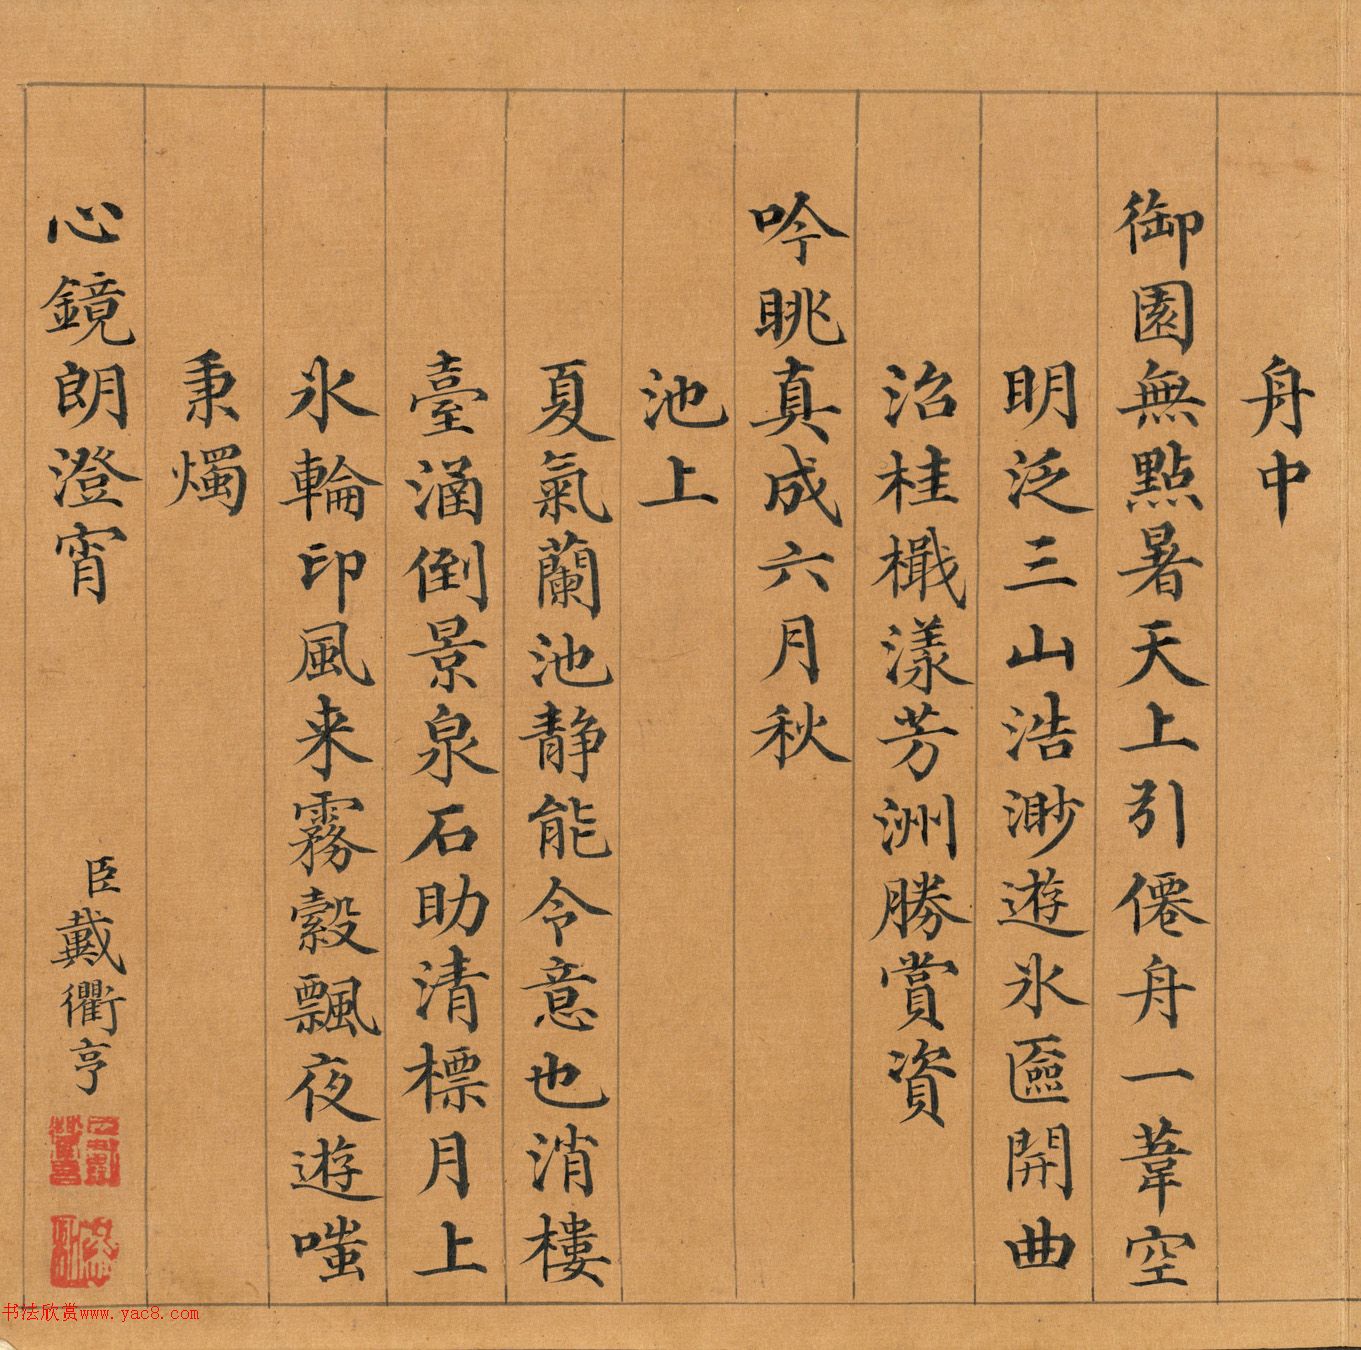 舟中
御園無點暑天上引僊舟一葦空
明泛三山浩渺遊氷匳開曲
沼桂檝漾芳洲勝賞資
吟眺真成六月秋
池上
夏氣蘭池静能令意也消樓
臺涵倒景泉石助清標月上
氷輪印風来霧縠飄夜遊嗤
秉燭
心鏡朗澄宵
臣戴衢亨
书法欣赏www.yac8.com